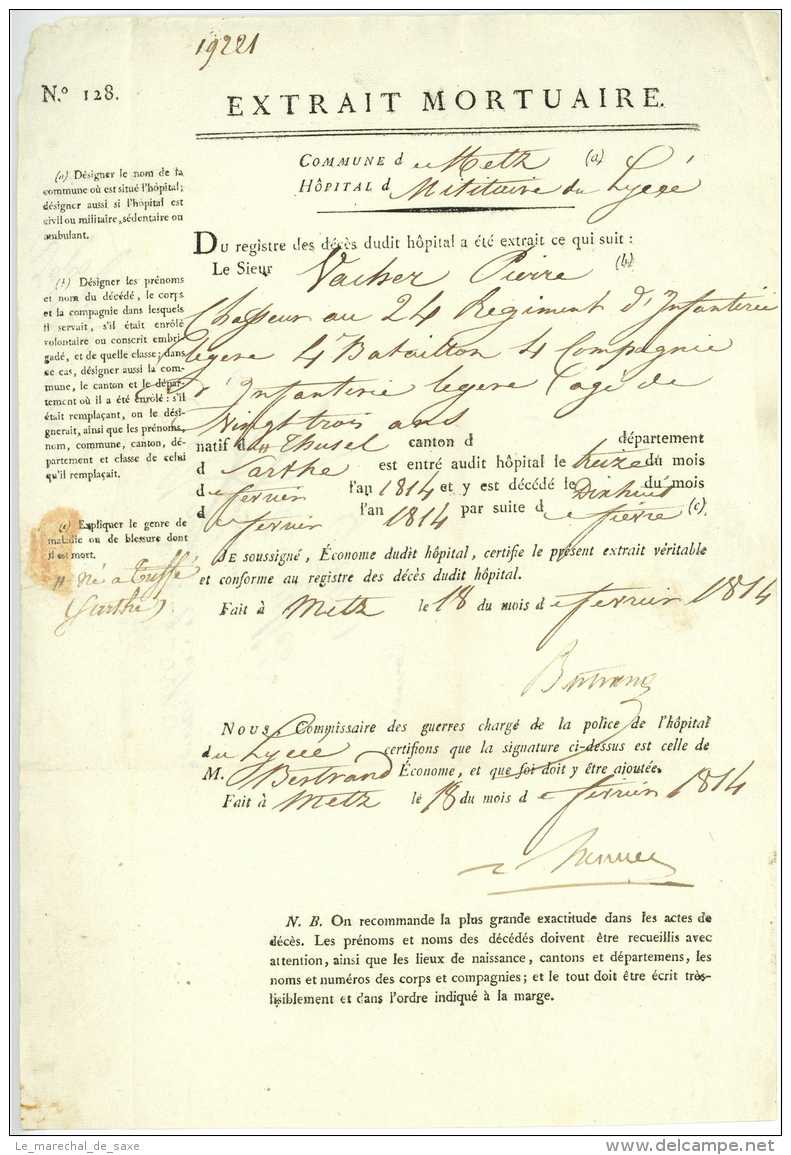 19221
N.º 128.
EXTRAIT MORTUAIRE.
COMMUNE d e Metz (a)
HÔPITAL d Mititaire du Lycée
(a) Désigner le nom de la
commune où est situé l'hôpital;
désigner aussi si l'hôpital est
civil ou militaire, sédentaire ou
ambulant.
DU registre des décès dudit hôpital a été extrait ce qui suit :
Le Sieur Vacher Pierre (b)
Chasseur au 24 Regiment d'Infanterie
legere 4e Bataillon 4 Compagnie
d'Infanterie legere L'agé de
Vingt trois ans
(b) Désigner les prénoms
et nom du décédé, le corps
et la compagnie dans lesquels
il servait, s'il était enrôlé
volontaire ou conscrit embri-
gadé, et de quelle classe; dans
ce cas, désigner aussi la com-
mune, le canton et le dépar-
tement où il a été enrôlé : s'il
était remplaçant, on le dési-
gnerait, ainsi que les prénoms,
nom, commune, canton, dé-
partement et classe de celui
qu'il remplaçait.
natif de Thusel canton d département
d Sarthe est entré audit hôpital le treize du mois
de fevrier l'an 1814 et y est décédé le Dixhuit du mois
de fevrier l'an 1814 par suite de fievre (c).
(c) Expliquer le genre de
maladie ou de blessure dont
il est mort.
// Né a tuffé
(Sarthe)
JE soussigné, Économe dudit hôpital, certifie le présent extrait véritable
et conforme au registre des décès dudit hôpital.
Fait à Metz le 18 du mois de fevrier 1814
Bertrand
NOUS Commissaire des guerres chargé de la police de l'hôpital
du Lycée certifions que la signature ci-dessus est celle de
M. Bertrand Économe, et que foi doit y être ajoutée.
Fait à Metz le 18 du mois de fevrier 1814
N. B. On recommande la plus grande exactitude dans les actes de
décès. Les prénoms et noms des décédés doivent être recueillis avec
attention, ainsi que les lieux de naissance, cantons et départemens, les
noms et numéros des corps et compagnies; et le tout doit être écrit très-
lisiblement et dans l'ordre indiqué à la marge.
Le_marechal_de_saxe
www.delcampe.net